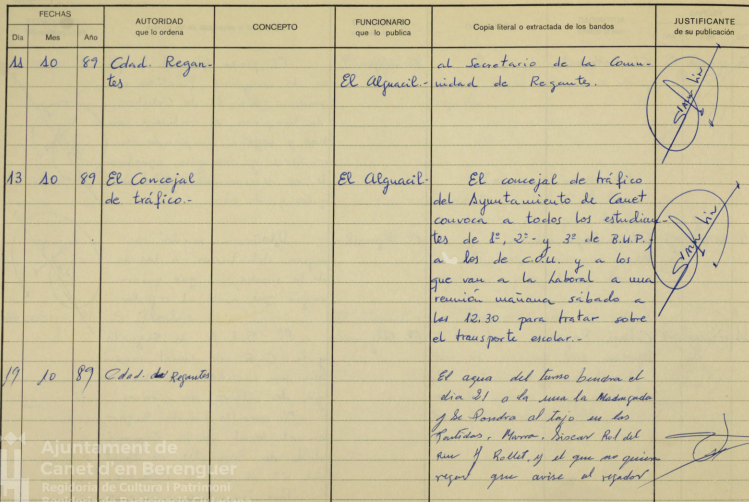 FECHAS
Día Mes Año
AUTORIDAD
que lo ordena
CONCEPTO
FUNCIONARIO
que lo publica
Copia literal o extractada de los bandos
JUSTIFICANTE
de su publicación
11 10 89 Cdad. Regan-
tes
El Alguacil.-
al Secretario de la Comu-
nidad de Regantes.
13 10 89 El Concejal
de tráfico.-
El Alguacil.-
El concejal de tráfico
del Ayuntamiento de Canet
convoca a todos los estudian-
tes de 1º, 2º- y 3º de B.U.P.,
a los de C.O.U. y a los
que van a la Laboral a una
reunión mañana sábado a
las 12.30 para tratar sobre
el transporte escolar.-
19 10 89 Cdad. de Regantes
El agua del turno bendra el
dia 21 a la una la Madugada
y Se Pondra al tajo en las
Partidas, Marra, Siscar Rol del
Riu Y Rollet, y el que no quiera
regar que avise al regador
Ajuntament de
Canet d'en Berenguer
Regidoria de Cultura i Patrimoni